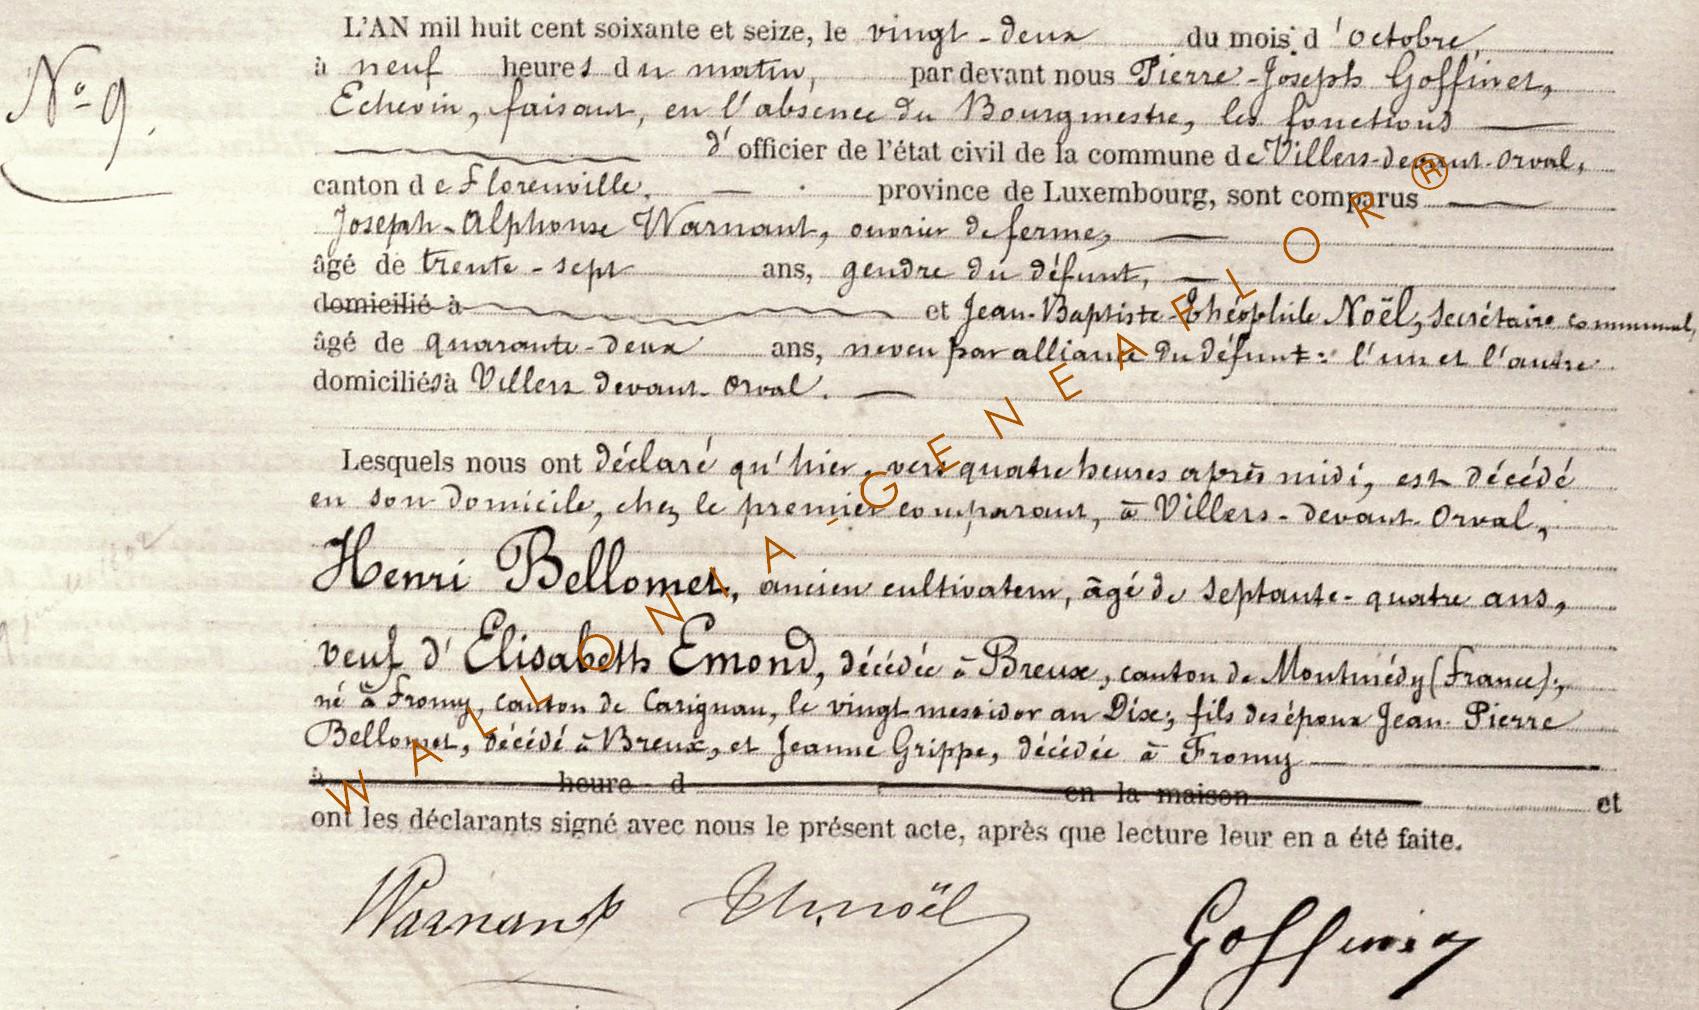 L'AN mil huit cent soixante et seize, le vingt-deux du mois d'octobre,
N° 9.
à neuf heures du matin, par devant nous Pierre-Joseph Goffinet,
Echevin, faisant, en l'absence du Bourgmestre, les fonctions
d'officier de l'état civil de la commune de Villers-devant-Orval,
canton de Florenville, province de Luxembourg, sont comparus
Joseph-Alphonse Warnant, ouvrier de ferme,
âgé de trente-sept ans, gendre du défunt,
domicilié à et Jean-Baptiste-Théophile Noël, secrétaire communal,
âgé de quarante-deux ans, neveu par alliance du défunt: l'un et l'autre
domiciliés à Villers devant-Orval.
Lesquels nous ont déclaré qu'hier, vers quatre heures après midi, est décédé
en son domicile, chez le premier comparant, à Villers-devant-Orval,
Henri Bellomet, ancien cultivateur, âgé de septante-quatre ans,
veuf d'Elisabeth Emond, décédée à Breux, canton de Montmédy (France);
né à Fromy, canton de Carignan, le vingt messidor an Dix; fils des époux Jean-Pierre
Bellomet, décédé à Breux, et Jeanne Grippe, décédée à Fromy
à heure d en la maison et
ont les déclarants signé avec nous le présent acte, après que lecture leur en a été faite.
Warnant Th. Noël Goffinet
WALLONIA-GENEAFLOR®